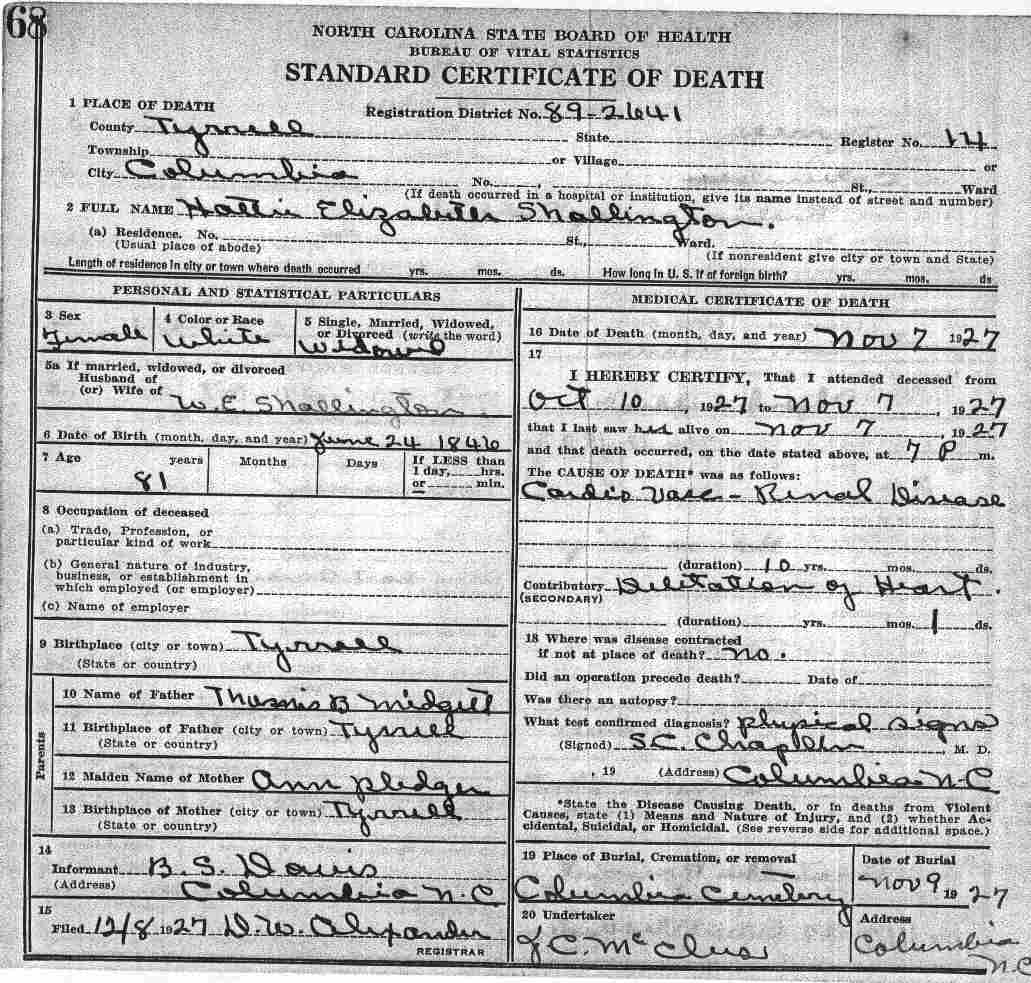 68
NORTH CAROLINA STATE BOARD OF HEALTH
BUREAU OF VITAL STATISTICS
STANDARD CERTIFICATE OF DEATH
1 PLACE OF DEATH
Registration District No. 89-2641
County Tyrrell State Register No. 14
Township or Village or
City Columbia No. , St., Ward
(If death occurred in a hospital or institution, give its name instead of street and number)
2 FULL NAME Hattie Elizabeth Shallington.
(a) Residence. No. St., Ward.
(Usual place of abode) (If nonresident give city or town and State)
Length of residence in city or town where death occurred yrs. mos. ds. How long in U. S. if of foreign birth? yrs. mos. ds
PERSONAL AND STATISTICAL PARTICULARS
3 Sex
Female
4 Color or Race
White
5 Single, Married, Widowed,
or Divorced (write the word)
Widowed
5a If married, widowed, or divorced
Husband of
(or) Wife of W. E. Shallington.
6 Date of Birth (month, day, and year) June 24 1846
7 Age years Months Days If LESS than
1 day, hrs.
81 or min.
8 Occupation of deceased
(a) Trade, Profession, or
particular kind of work
(b) General nature of industry,
business, or establishment in
which employed (or employer)
(c) Name of employer
9 Birthplace (city or town) Tyrrell
(State or country)
Parents
10 Name of Father Thomas B Midgett
11 Birthplace of Father (city or town) Tyrrell
(State or country)
12 Maiden Name of Mother Ann Pledger
13 Birthplace of Mother (city or town) Tyrrell
(State or country)
14
Informant B. S. Davis
(Address) Columbia N.C
15
Filed 12/8 1927 D. W. Alexander
REGISTRAR
MEDICAL CERTIFICATE OF DEATH
16 Date of Death (month, day, and year) Nov 7 1927
17
I HEREBY CERTIFY, That I attended deceased from
Oct 10, 1927 to Nov 7, 1927
that I last saw her alive on Nov 7, 1927
and that death occurred, on the date stated above, at 7 P m.
The CAUSE OF DEATH* was as follows:
Cardio Vasc - Renal Disease
(duration) 10 yrs. mos. ds.
Contributory Dilitation of Heart.
(SECONDARY)
(duration) yrs. mos. 1 ds.
18 Where was disease contracted
if not at place of death? no.
Did an operation precede death? Date of
Was there an autopsy?
What test confirmed diagnosis? Physical signs
(Signed) S.C. Chaplin, M. D.
, 19 (Address) Columbia N-C
*State the Disease Causing Death, or in deaths from Violent
Causes, state (1) Means and Nature of Injury, and (2) whether Ac-
cidental, Suicidal, or Homicidal. (See reverse side for additional space.)
19 Place of Burial, Cremation, or removal
Columbia Cemetery
Date of Burial
Nov 9 1927
20 Undertaker
J C. Mc
Address
Columbia
N.C